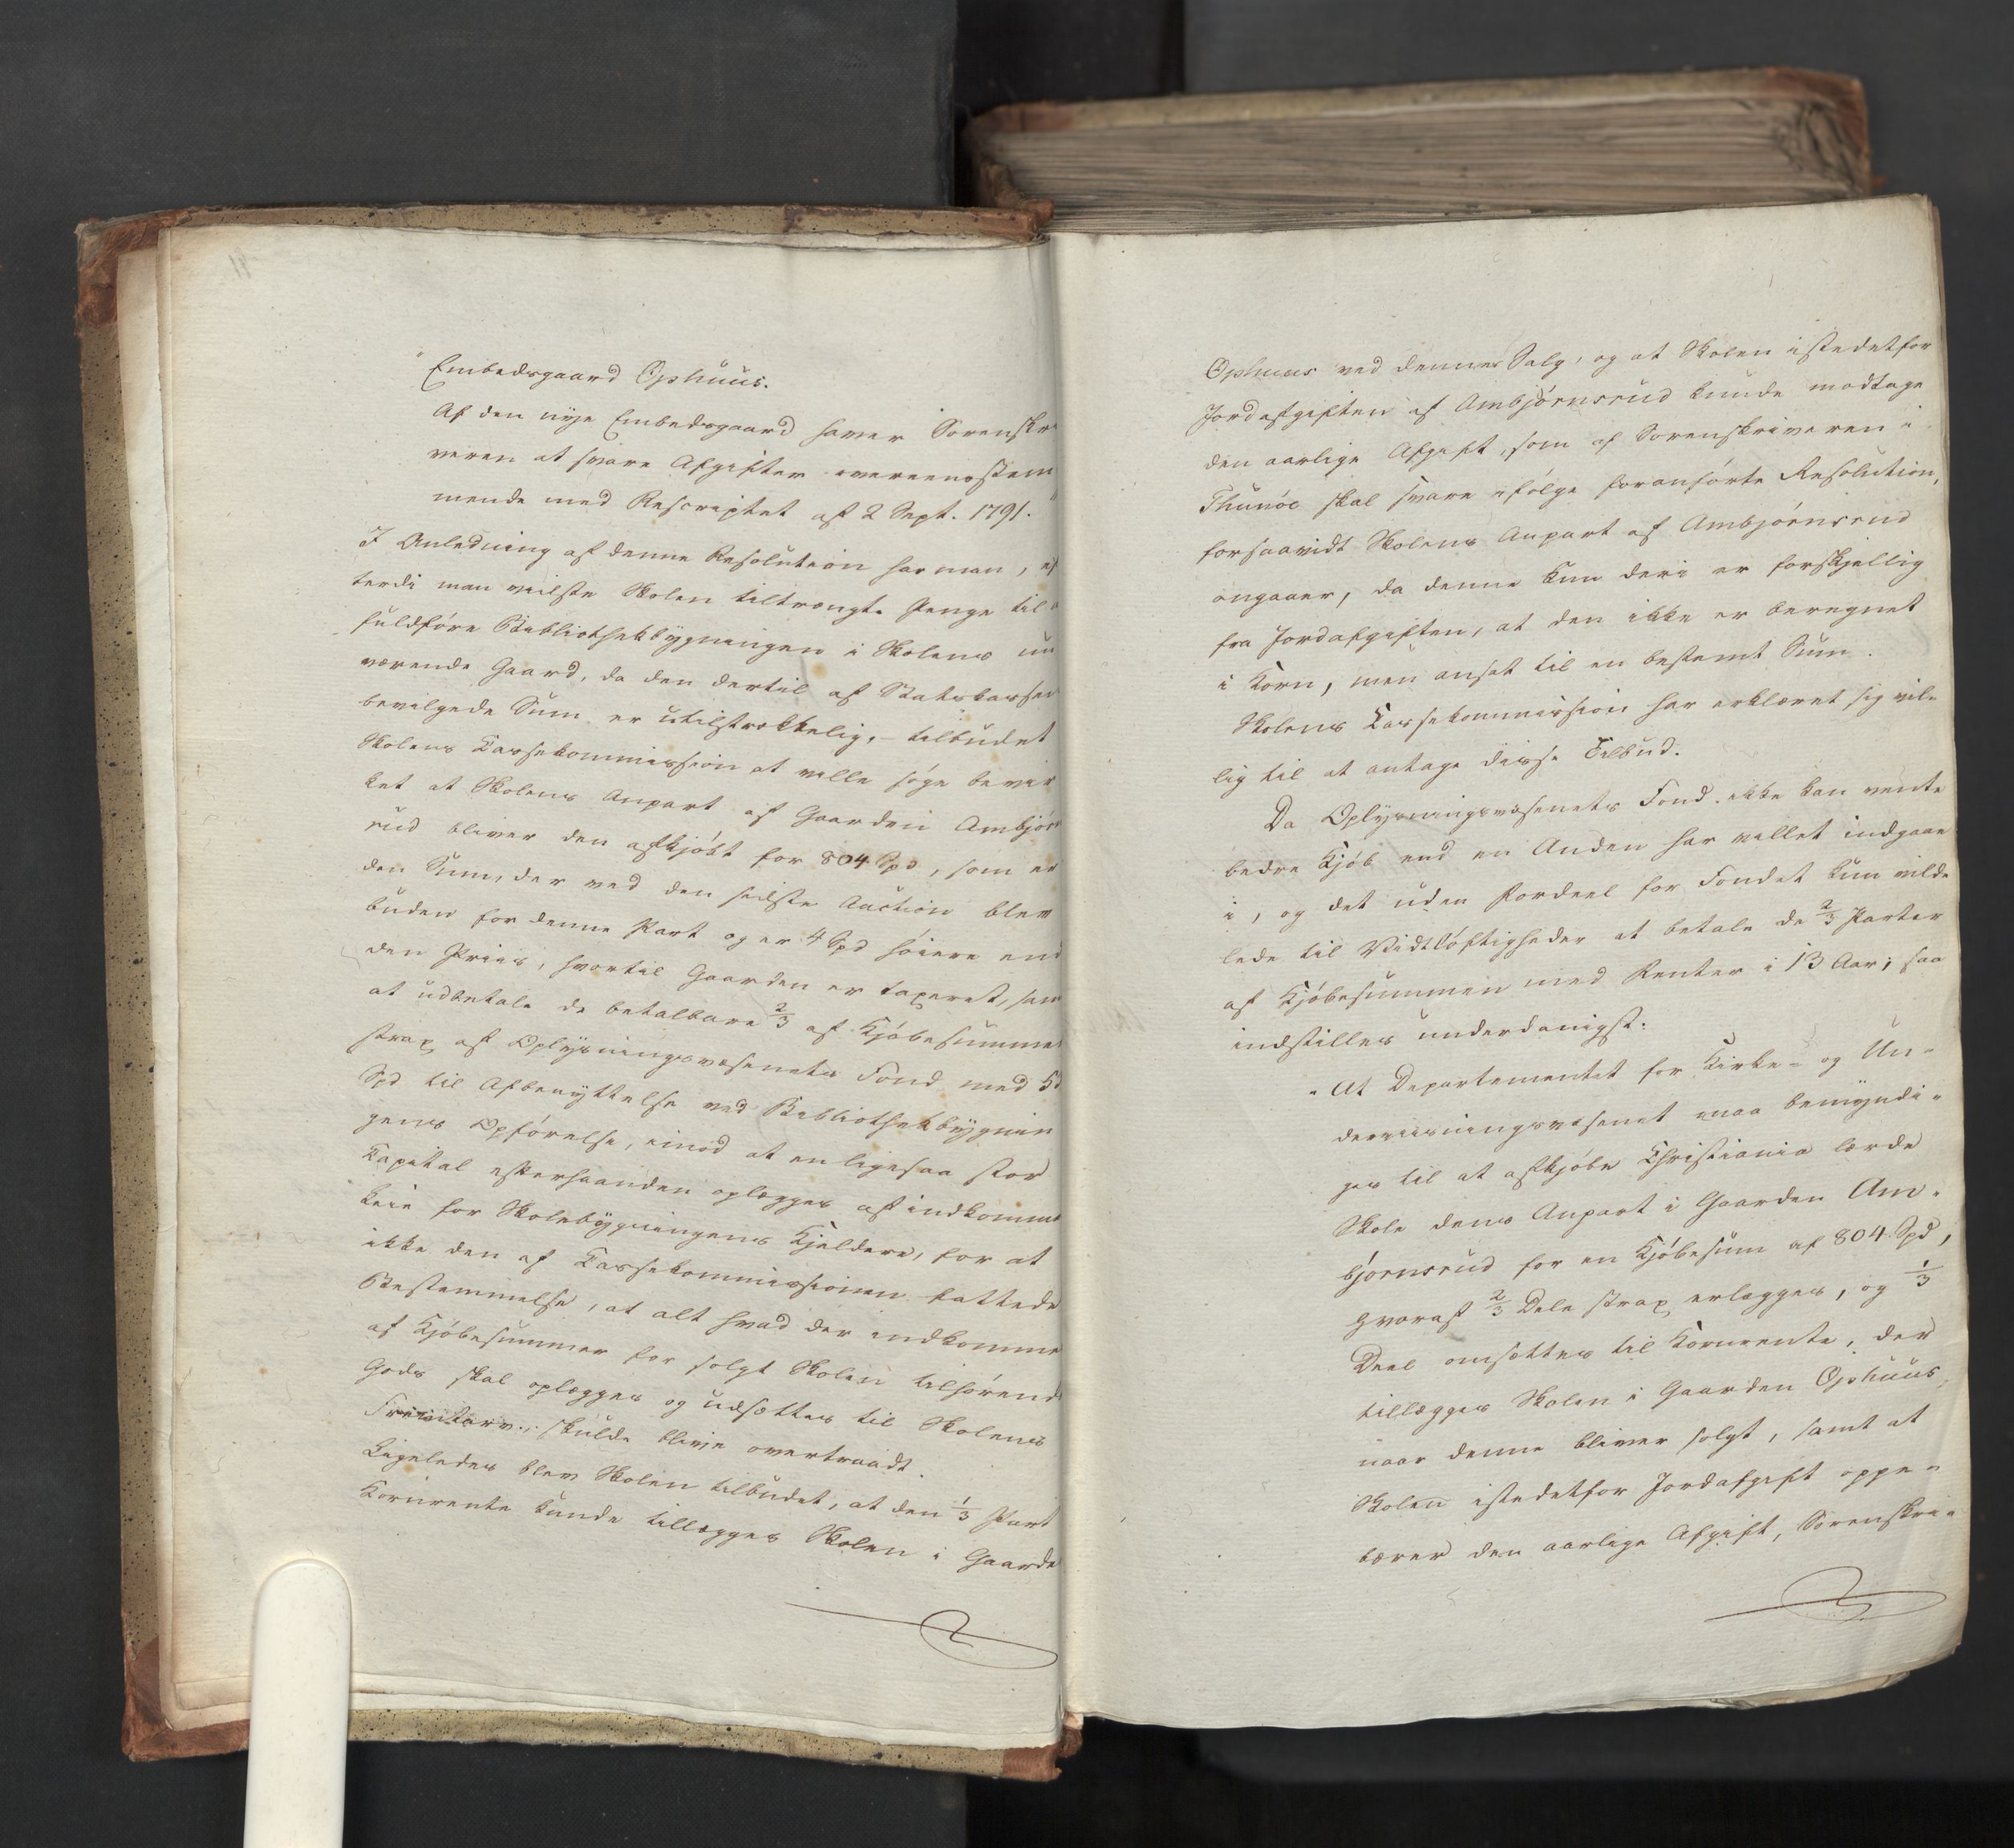 "Embedsgaard Ophuus.
Af den nye Embedsgaard haver Sorenskri
veren at svare Afgifter overeensstem
mende med Rescriptet af 2 Sept. 1791."
I Anledning af denne Resolution har man, ef
terdi man vidste Skolen tiltrængte Penge til
fuldføre Bibliothekbygningen i Skolens nu
værende Gaard, da den dertil af Statskassen
bevilgede Sum er utilstrækkelig, tilbudet
Skolens Kassekommission at ville søge bevir
ket at Skolens Anpart af Gaarden Ambjørns
rud bliver den afkjøbt for 804 Spd, som er
den Sum, der ved den sidste Auction blev
buden for denne Part og er 4 Spd høiere end
den Priis, hvortil Gaarden er taxeret, samt
at udbetale de betalbare 2/3 af Kjøbesummen
strax af Oplysningsvæsenets Fond med 5
Spd til Afbenyttelse ved Bibliothekbygnin
gens Opførelse, imod at en ligesaa stor
Kapital efterhaanden oplægges af indkommen
Leie for Skolebygningens Kjeldere, for at
ikke den af Kassekommissionen fattede
Bestemmelse, at alt hvad der indkommer
af Kjøbesummer for solgt Skolen tilhørende
Gods skal oplægges og udsættes til Skolens
skulde blive overtraadt.
Ligeledes blev Skolen tilbudet, at den 1/3 Part
Kornrente kunde tillægges Skolen i Gaarden
Ophuus ved dennes Salg, og at Skolen istedetfor
Jordafgiften af Ambjørnsrud kunde modtage
den aarlige Afgift, som af Sorenskriveren i
Thunøe skal svare ifølge foranførte Resolution,
forsaavidt Skolens Anpart af Ambjørnsrud
angaaer, da denne kun deri er forskjellig
fra Jordafgiften, at den ikke er beregnet
i Korn, men ansat til en bestemt Sum.
Skolens Kassekommission har erklæret sig vil-
lig til at antage disse Tilbud.
Da Oplysningsvæsenets Fond ikke kan vente
bedre Kjøb end en Anden har villet indgaae
i, og det uden Fordeel for Fondet kun vilde
lede til Vidtløftigheder at betale de 2/3 Parter
af Kjøbesummen med Renter i 13 Aar; saa
indstilles underdanigst:
"At Departementet for Kirke- og Un-
derviisningsvæsenet maa bemyndi-
ges til at afkjøbe Christiania lærde
Skole dens Anpart i Gaarden Am-
bjørnsrud for en Kjøbesum af 804 Spd,
hvoraf 2/3 Dele strax erlægges, og 1/3
Deel omsættes til Kornrente, der
tillægges Skolen i Gaarden Ophuus,
naar denne bliver solgt, samt at
Skolen istedetfor Jordafgift oppe-
bærer den aarlige Afgift, Sorenskri-